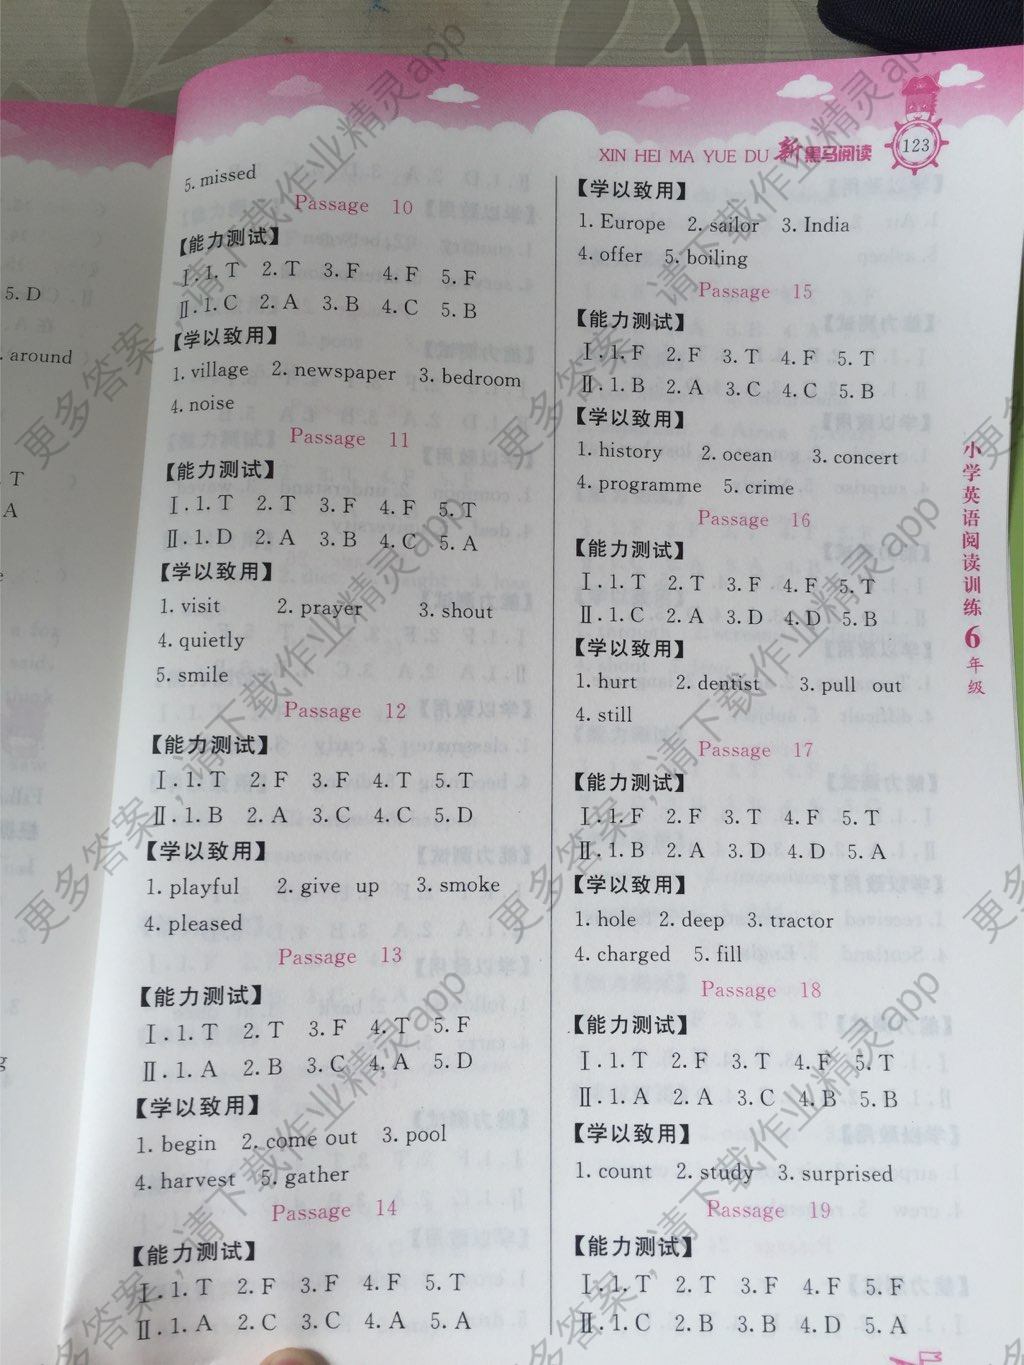 XIN HEI MA YUE DU 新黑马阅读
123
5. D
around
T
A
5. missed
Passage 10
【能力测试】
Ⅰ. 1. T 2. T 3. F 4. F 5. F
Ⅱ. 1. C 2. A 3. B 4. C 5. B
【学以致用】
1. village 2. newspaper 3. bedroom
4. noise
Passage 11
【能力测试】
Ⅰ. 1. T 2. T 3. F 4. F 5. T
Ⅱ. 1. D 2. A 3. B 4. C 5. A
【学以致用】
1. visit 2. prayer 3. shout
4. quietly
5. smile
Passage 12
【能力测试】
Ⅰ. 1. T 2. F 3. F 4. T 5. T
Ⅱ. 1. B 2. A 3. C 4. C 5. D
【学以致用】
1. playful 2. give up 3. smoke
4. pleased
Passage 13
【能力测试】
Ⅰ. 1. T 2. T 3. F 4. T 5. F
Ⅱ. 1. A 2. B 3. C 4. A 5. D
【学以致用】
1. begin 2. come out 3. pool
4. harvest 5. gather
Passage 14
【能力测试】
Ⅰ. 1. T 2. F 3. F 4. F 5. T
Ⅱ. 1. A 2. C 3. C 4. A 5. A
【学以致用】
1. Europe 2. sailor 3. India
4. offer 5. boiling
Passage 15
【能力测试】
Ⅰ. 1. F 2. F 3. T 4. F 5. T
Ⅱ. 1. B 2. A 3. C 4. C 5. B
【学以致用】
1. history 2. ocean 3. concert
4. programme 5. crime
Passage 16
【能力测试】
Ⅰ. 1. T 2. T 3. F 4. F 5. T
Ⅱ. 1. C 2. A 3. D 4. D 5. B
【学以致用】
1. hurt 2. dentist 3. pull out
4. still
Passage 17
【能力测试】
Ⅰ. 1. F 2. F 3. T 4. F 5. T
Ⅱ. 1. B 2. A 3. D 4. D 5. A
【学以致用】
1. hole 2. deep 3. tractor
4. charged 5. fill
Passage 18
【能力测试】
Ⅰ. 1. T 2. F 3. T 4. F 5. T
Ⅱ. 1. A 2. A 3. C 4. B 5. B
【学以致用】
1. count 2. study 3. surprised
Rassage 19
【能力测试】
Ⅰ. 1. T 2. T 3. F 4. F 5. F
Ⅱ. 1. C 2. B 3. B 4. D 5. A
小学英语阅读训练6年级
更多答案，请下载作业精灵app
更多答案，请下载作业精灵app
更多答案，请下载作业精灵app
更多答案，请下载作业精灵app